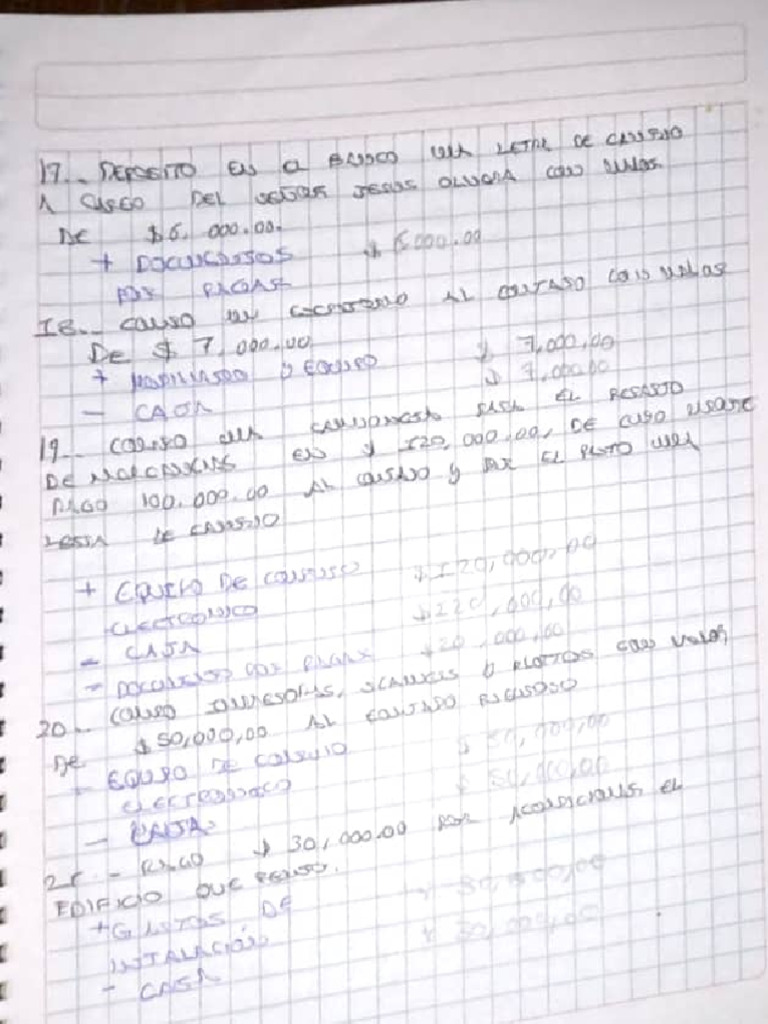 17.- DEPOSITO EN EL BANCO UNA LETRA DE CAMBIO
A CARGO DEL SEÑOR JESUS OLVERA CON VALOR
DE $6,000.00.
+ DOCUMENTOS $6,000.00
POR PAGAR
18.- COMPRO UN ESCRITORIO AL CONTADO CON VALOR
DE $7,000.00
+ MOBILIARIO O EQUIPO $7,000.00
- CAJA $7,000.00
19.- COMPRO UNA CAMIONETA PARA EL REPARTO
DE EN $120,000.00, DE CUYO
PAGO 100,000.00 AL CONTADO y POR EL UNA
LETRA DE CAMBIO
+ EQUIPO DE COMPUTO $120,000.00
ELECTRONICO
- CAJA
- DOCUMENTOS POR PAGAR $20,000.00
20.- COMPRO IMPRESORAS, SCANNERS O PLOTTERS CON VALOR
DE $50,000.00 AL CONTADO
+ EQUIPO DE COMPUTO $50,000.00
ELECTRONICO $50,000.00
- CAJA
21.- PAGO $30,000.00 POR ACONDICIONAR EL
EDIFICIO QUE
+ GASTOS DE
INTALACIÓN $30,000.00
- CAJA